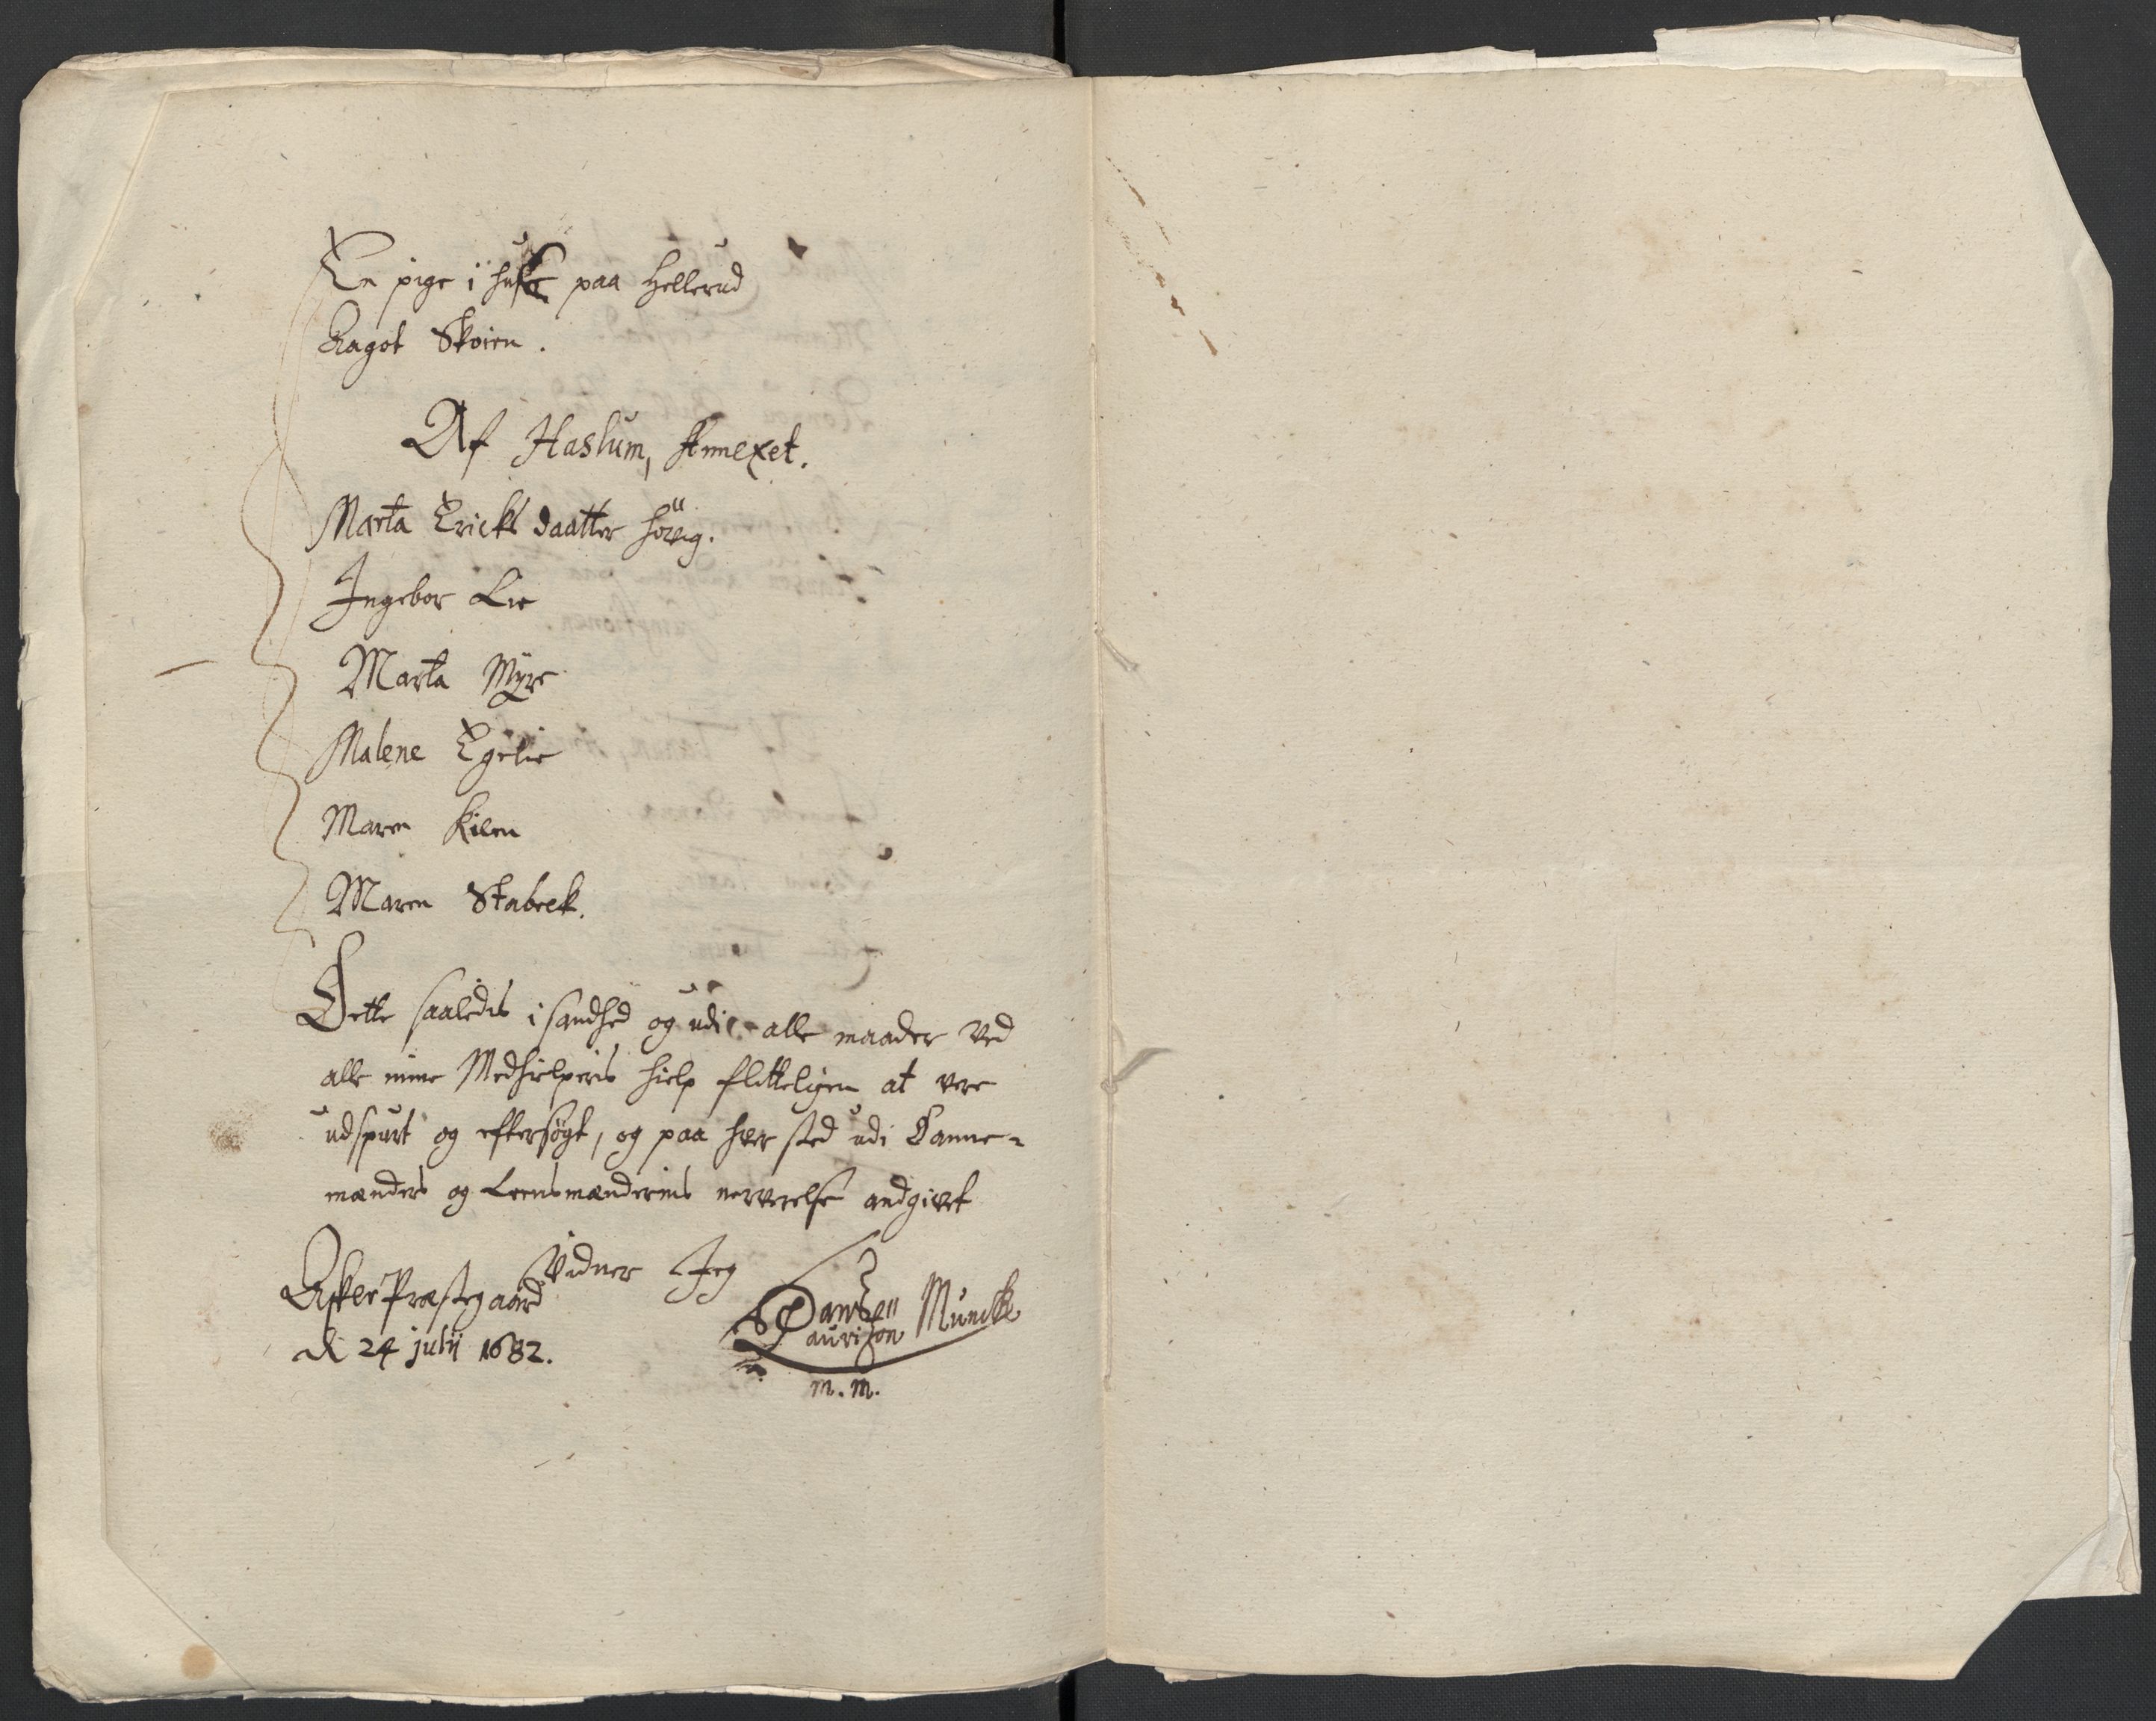 En pige i huse paa Hellerud
Ragot Skoien.
Af Haslum, Annexet.
Marta Ericks daatter hövig.
Ingebor Lie
Marta Myre
Malene Egelie
Maren Kilen
Maren Stabeck.
Dette saaledis i sandhed og udi alle maader ved
alle mine Medhielperis hielp flitteligen at vere
udspurt og eftersøgt, og paa hver sted udi Danne-
mænders og Leensmænderins nerverelse andgivet
Vidner Jeg
Asker Præstegaard
di 24 julii 1682.
Laurizøn Munck
m. m.